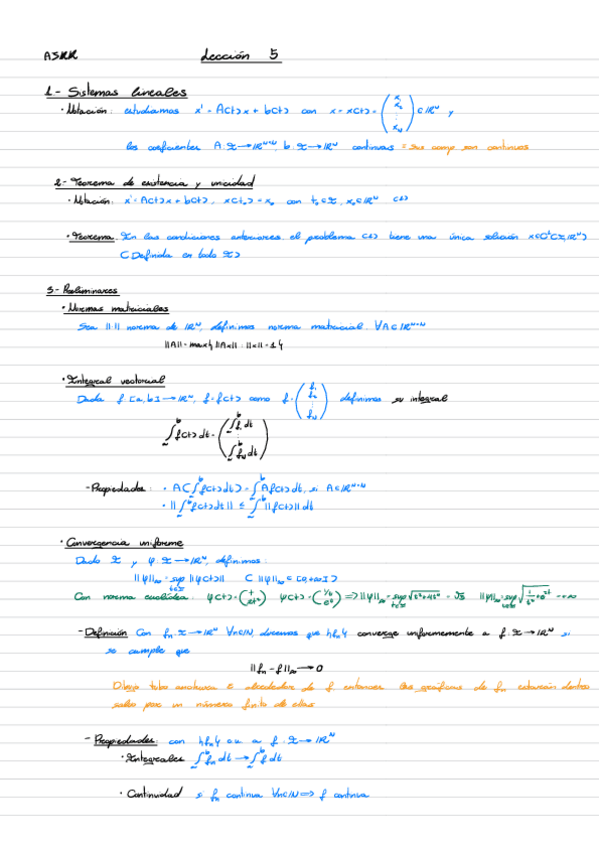 Lección 5
1- Sistemas lineales
· Notación: estudiamos x' = A(t)x + b(t) con x = x(t) = (x₁ x₂ ⋮ x_N) ∈ ℝᴺ y
los coeficientes A: I → ℝᴺˣᴺ, b: I → ℝᴺ continuas = sus comp son continuas
2- Teorema de existencia y unicidad
· Notación: x' = A(t)x + b(t), x(t₀) = x₀ con t₀ ∈ I, x₀ ∈ ℝᴺ
· Teorema: En las condiciones anteriores el problema tiene una única solución x ∈ C¹(I, ℝᴺ)
(Definida en todo I)
3- Preliminares
· Normas matriciales
Sea || || norma de ℝᴺ, definimos norma matricial ∀A ∈ ℝᴺˣᴺ
||A|| = max{||Ax|| : ||x|| = 1}
· Integral vectorial
Dada f: [a,b] → ℝᴺ, f = f(t) como f = (f₁ f₂ ⋮ f_N) definimos su integral
∫ₐᵇ f(t)dt = (∫ₐᵇ f₁ dt ⋮ ∫ₐᵇ f_N dt)
- Propiedades: · A(∫ₐᵇ f(t)dt) = ∫ₐᵇ A f(t)dt, si A ∈ ℝᴺˣᴺ
· ||∫ₐᵇ f(t)dt|| ≤ ∫ₐᵇ ||f(t)||dt
· Convergencia uniforme
Dado I y φ: I → ℝᴺ, definimos:
||φ||∞ = sup ||φ(t)|| (||φ||∞ ∈ [0,+∞])
Con norma euclídea:
- Definición Con fₙ: I → ℝᴺ ∀n∈ℕ, diremos que {fₙ} converge uniformemente a f: I → ℝᴺ si
se cumple que
||fₙ - f||∞ → 0
Dibujo tubo alrededor de f entonces las gráficas de fₙ estarán dentro
salvo por un número finito de ellas
- Propiedades: con {fₙ} c.u. a f: I → ℝᴺ
· Integrales ∫ₐᵇ fₙ dt → ∫ₐᵇ f dt
· Continuidad si fₙ continua ∀n∈ℕ ⟹ f continua